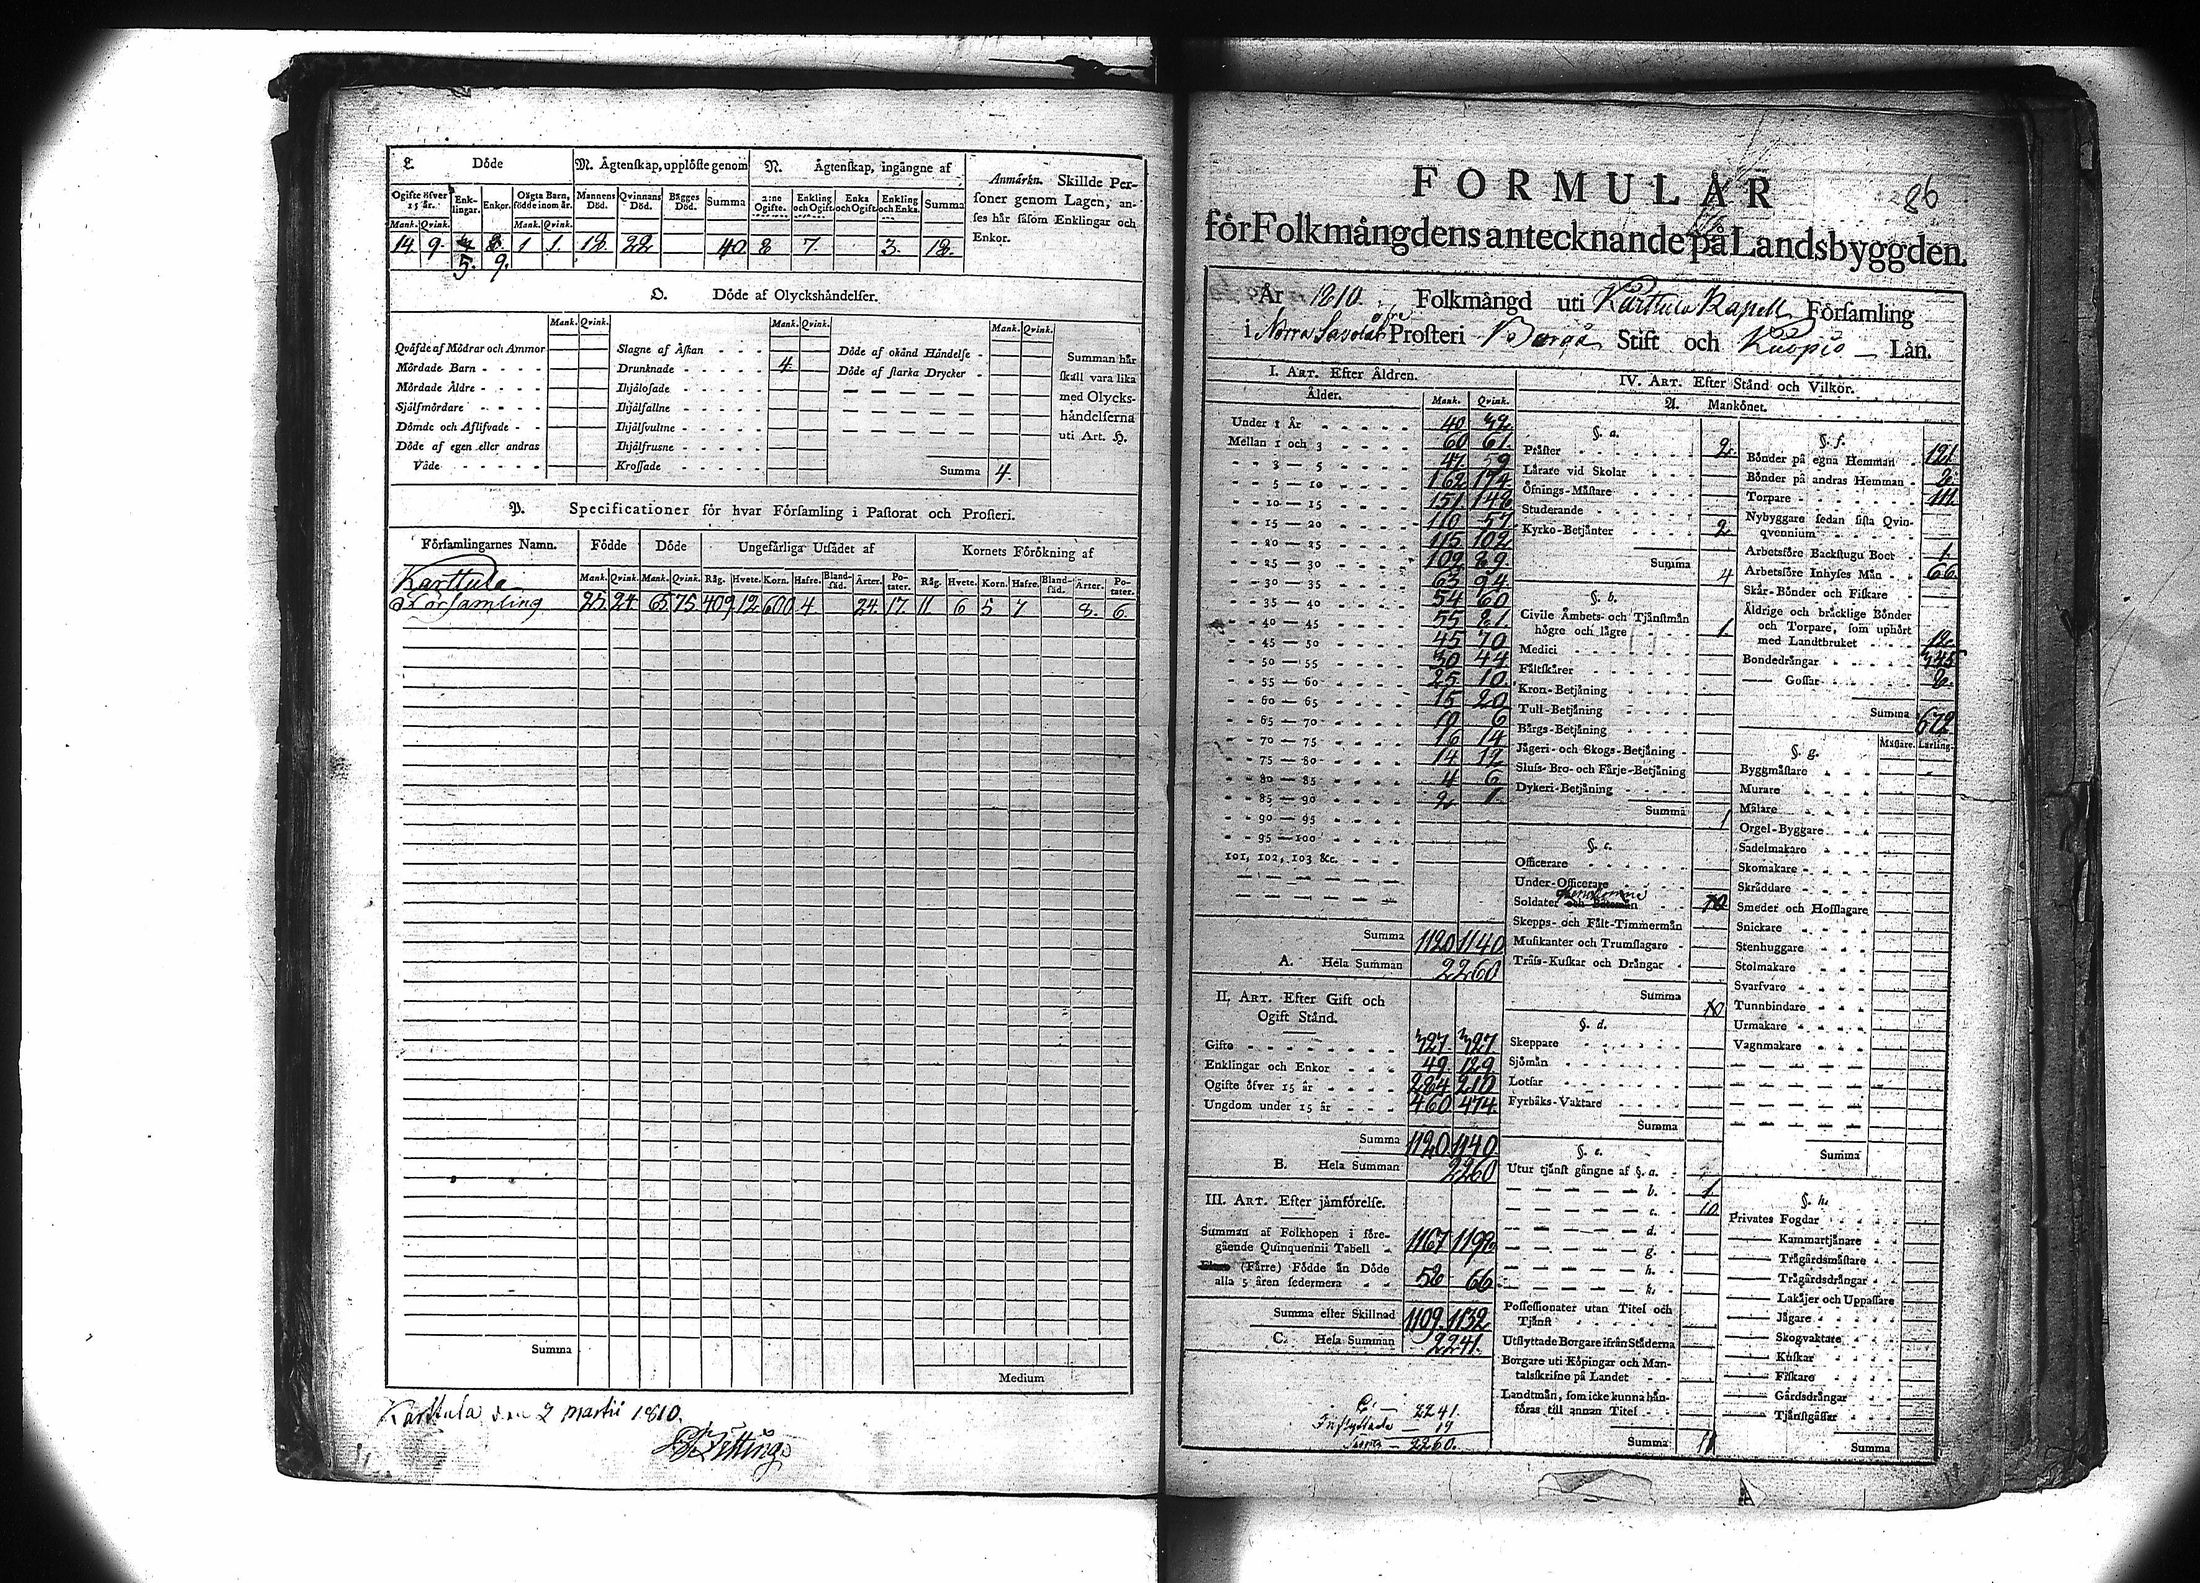 L. Döde
M. Ägtenskap, uplöste genom
N. Ägtenskap, ingångne af
Anmärkn. Skillde Personer genom Lagen, anses här såsom Enklingar och Enkor.
Ogifte öfver 15 år. Enklingar. Enkor. Oägta Barn, födde inom år. Mannens Död. Qvinnans Död. Bägges Död. Summa 2:ne Ogifte. Enkling och Ogift Enka och Ogift Enkling och Enka. Summa
Mank. Qvink. Mank. Qvink.
14. 9. 1 1. 18. 22 40 8 7. 3. 18.
5. 9.
O. Döde af Olyckshändelser.
Mank. Qvink. Mank. Qvink. Mank. Qvink.
Qväfde af Mödrar och Ammor
Mördade Barn
Mördade Äldre
Självmördare
Dömde och Aflifvade
Döde af egen eller andras Våde
Slagne af Åskan
Drunknade 4
Ihjälosade
Ihjälfallne
Ihjälsvultne
Ihjälfrusne
Krossade
Döde af okänd Händelse
Döde af starka Drycker
Summan här skall vara lika med Olyckshändelserna uti Art. H.
Summa 4.
P. Specificationer för hvar Församling i Pastorat och Prosteri.
Församlingarnes Namn. Födde Döde Ungefärliga Utsädet af Kornets Förökning af
Mank. Qvink. Mank. Qvink. Råg. Hvete. Korn. Hafre. Blandsäd. Ärter. Potater. Råg. Hvete. Korn. Hafre. Blandsäd. Ärter. Potater.
Karttula
Församling 25 24 65 75 409 12 600 4 24 17 11 6 5 7 8. 6.
Summa
Medium
Karttula den 2 Martii 1810.
86
FORMULÄR
för Folkmängdens antecknande på Landsbyggden.
År 1810. Folkmängd uti Karttula Kapell Församling
i Norra Savolax öfre Prosteri Borgå Stift och Kuopio Län.
I. Art. Efter Åldren.
Ålder. Mank. Qvink.
Under 1 År 40 32
Mellan 1 och 3 60 61.
3 — 5 47. 59
5 — 10 162 174.
10 — 15 151. 148.
15 — 20 110 57
20 — 25 115 102
25 — 30 102 89.
30 — 35 63 94
35 — 40 54 60
40 — 45 55 81.
45 — 50 45 70
50 — 55 30 44
55 — 60 25 10
60 — 65 15 20
65 — 70 10 6
70 — 75 16 14
75 — 80 14 12
80 — 85 4 6
85 — 90 2 1.
90 — 95
95 — 100
101, 102, 103 &c.
Summa 1120 1140
A. Hela Summan 2260
II. Art. Efter Gift och Ogift Stånd.
Gifte 327. 327
Enklingar och Enkor 49. 129
Ogifte öfver 15 år 284 210
Ungdom under 15 år 460 474.
Summa 1120 1140.
B. Hela Summan 2260
III. Art. Efter jämförelse.
Summan af Folkhopen i föregående Quinquennii Tabell 1167 1198
(Färre) Födde än Döde alla 5 åren sedermera 58 66
Summa eller Skillnad 1109. 1132
C. Hela Summan 2241.
C. — 2241.
Inflyttade — 19
Summa — 2260.
IV. Art. Efter Stånd och Vilkor.
A. Mankönet.
§. a.
Präster 2.
Lärare vid Skolar
Öfnings-Mästare
Studerande
Kyrko-Betjänter 2
Summa 4
§. b.
Civile Ämbets- och Tjänstmän högre och lägre 1.
Medici
Fältskärer
Kron-Betjäning
Tull-Betjäning
Bärgs-Betjäning
Jägeri- och Skogs-Betjäning
Sluss- Bro- och Färje-Betjäning
Dykeri-Betjäning
Summa 1
§. c.
Officerare
Under-Officerare
Soldater och Båtsmän
Skepps- och Fält-Timmermän
Musikanter och Trumslagare
Träss-Kuskar och Drängar
Summa
§. d.
Skeppare
Sjömän
Lotsar
Fyrbåks-Vaktare
Summa
§. e.
Utur tjänst gångne af §. a.
b. 1.
c. 10
d.
g.
h.
k.
Possessionater utan Titel och Tjänst
Utflyttade Borgare ifrån Städerna
Borgare uti Köpingar och Mantalsskrifne på Landet
Landtmän, som icke kunna hänföras till annan Titel
Summa 11
§. f.
Bönder på egna Hemman 121.
Bönder på andras Hemman 2.
Torpare 111.
Nybyggare sedan sista Qvinqvennium
Arbetsföre Backstugu Boer 1.
Arbetsföre Inhyses Män 66
Skär-Bönder och Fiskare
Äldrige och bräcklige Bönder och Torpare, som uphört med Landtbruket 18.
Bondedrängar 345
Gossar 8.
Summa 672
§. g. Mästare. Lärling.
Byggmästare
Murare
Målare
Orgel-Byggare
Sadelmakare
Skomakare
Skräddare
Smeder och Hofslagare
Snickare
Stenhuggare
Stolmakare
Svarfvare
Tunnbindare
Urmakare
Vagnmakare
Summa
§. h.
Privates Fogdar
Kammartjänare
Trägårdsmästare
Trägårdsdrängar
Lakäjer och Uppassare
Jägare
Skogvaktare
Kuskar
Fiskare
Gårdsdrängar
Tjänstgässar
Summa